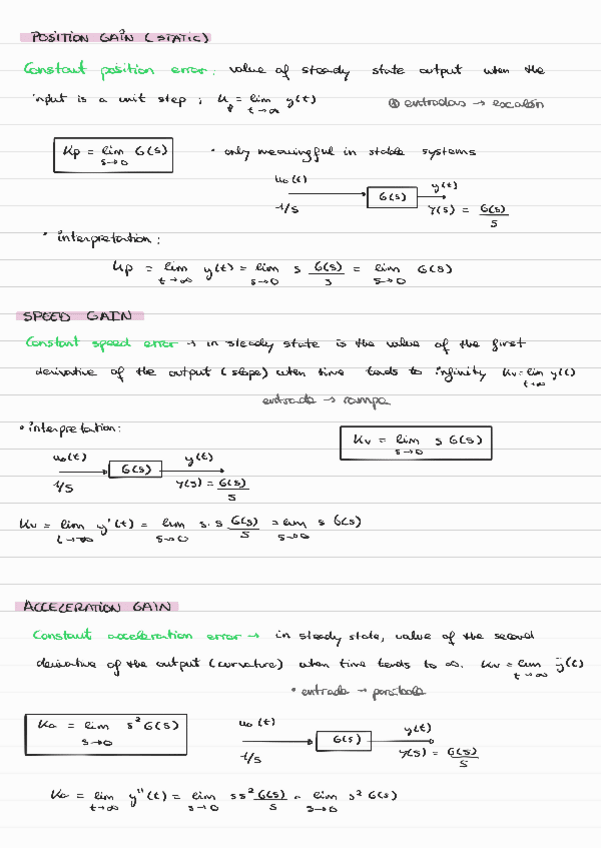 POSITION GAIN (STATIC)
Constant position error: value of steady state output when the
input is a unit step ; Kp = lim y(t) t→∞ ⊗ entradas → escalón
Kp = lim G(s) s→0 • only meaningful in stable systems
u₀(t) y(t)
G(s)
1/s Y(s) = G(s)/s
• interpretation:
Kp = lim y(t) = lim s G(s)/s = lim G(s)
t→∞ s→0 s→0
SPEED GAIN
Constant speed error → in steady state is the value of the first
derivative of the output (slope) when time tends to infinity Kv = lim y(t)
t→∞
entrada → rampa
• interpretation: Kv = lim s G(s)
s→0
u₀(t) y(t)
G(s)
1/s Y(s) = G(s)/s
Kv = lim y'(t) = lim s·s G(s)/s = lim s G(s)
t→∞ s→0 s→0
ACCELERATION GAIN
Constant acceleration error → in steady state, value of the second
derivative of the output (curvature) when time tends to ∞. Kv = lim ÿ(t)
t→∞
• entrada → parábola
Ka = lim s² G(s) u₀(t) y(t)
s→0 G(s)
1/s Y(s) = G(s)/s
Ka = lim y''(t) = lim s s² G(s)/s = lim s² G(s)
t→∞ s→0 s→0